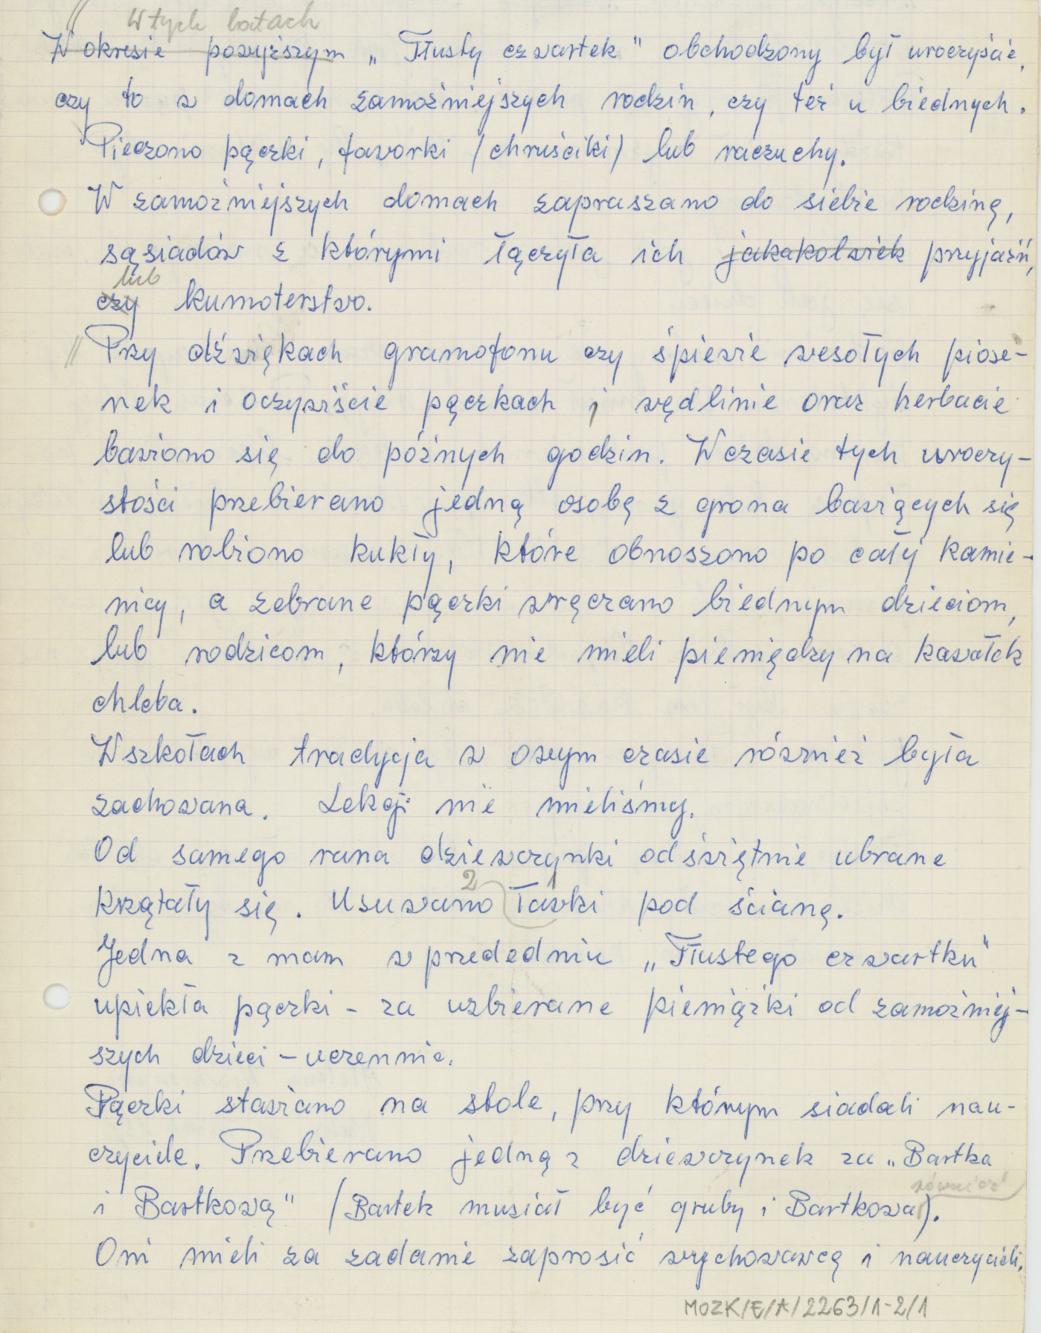 W tych latach
W okresie powyższym „Tłusty czwartek" obchodzony był uroczyście,
czy to w domach zamożniejszych rodzin, czy też u biednych.
Pieczono pączki, faworki (chruściki) lub raczuchy.
W zamożniejszych domach zapraszano do siebie rodzinę,
sąsiadów z którymi łączyła ich jakakolwiek przyjaźń,
lub
czy kumoterstwo.
Przy dźwiękach gramofonu czy śpiewie wesołych piose-
nek i oczywiście pączkach, wędlinie oraz herbacie
bawiono się do późnych godzin. W czasie tych uroczy-
stości przebierano jedną osobę z grona bawiących się
lub robiono kukły, które obnoszono po cały kamie-
nicy, a zebrane pączki wręczano biednym dzieciom,
lub rodzicom, którzy nie mieli pieniędzy na kawałek
chleba.
W szkołach tradycja w owym czasie również była
zachowana. Lekcji nie mieliśmy.
Od samego rana dziewczynki odświętnie ubrane
2 1
krzątały się. Usuwano ławki pod ścianę.
Jedna z mam w przededniu „Tłustego czwartku"
upiekła pączki - za uzbierane pieniążki od zamożniej-
szych dzieci - uczennic.
Pączki stawiano na stole, przy którym siadali nau-
czyciele. Przebierano jedną z dziewczynek za „Bartka
również
i Bartkową" (Bartek musiał być gruby i Bartkowa).
Oni mieli za zadanie zaprosić wychowawcę i nauczycieli.
MOZK/E/A/2263/1-2/1